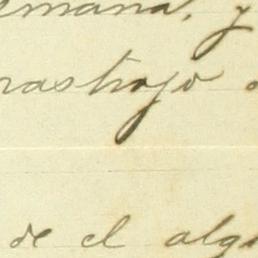 emana, y
rastrojo
de el alg